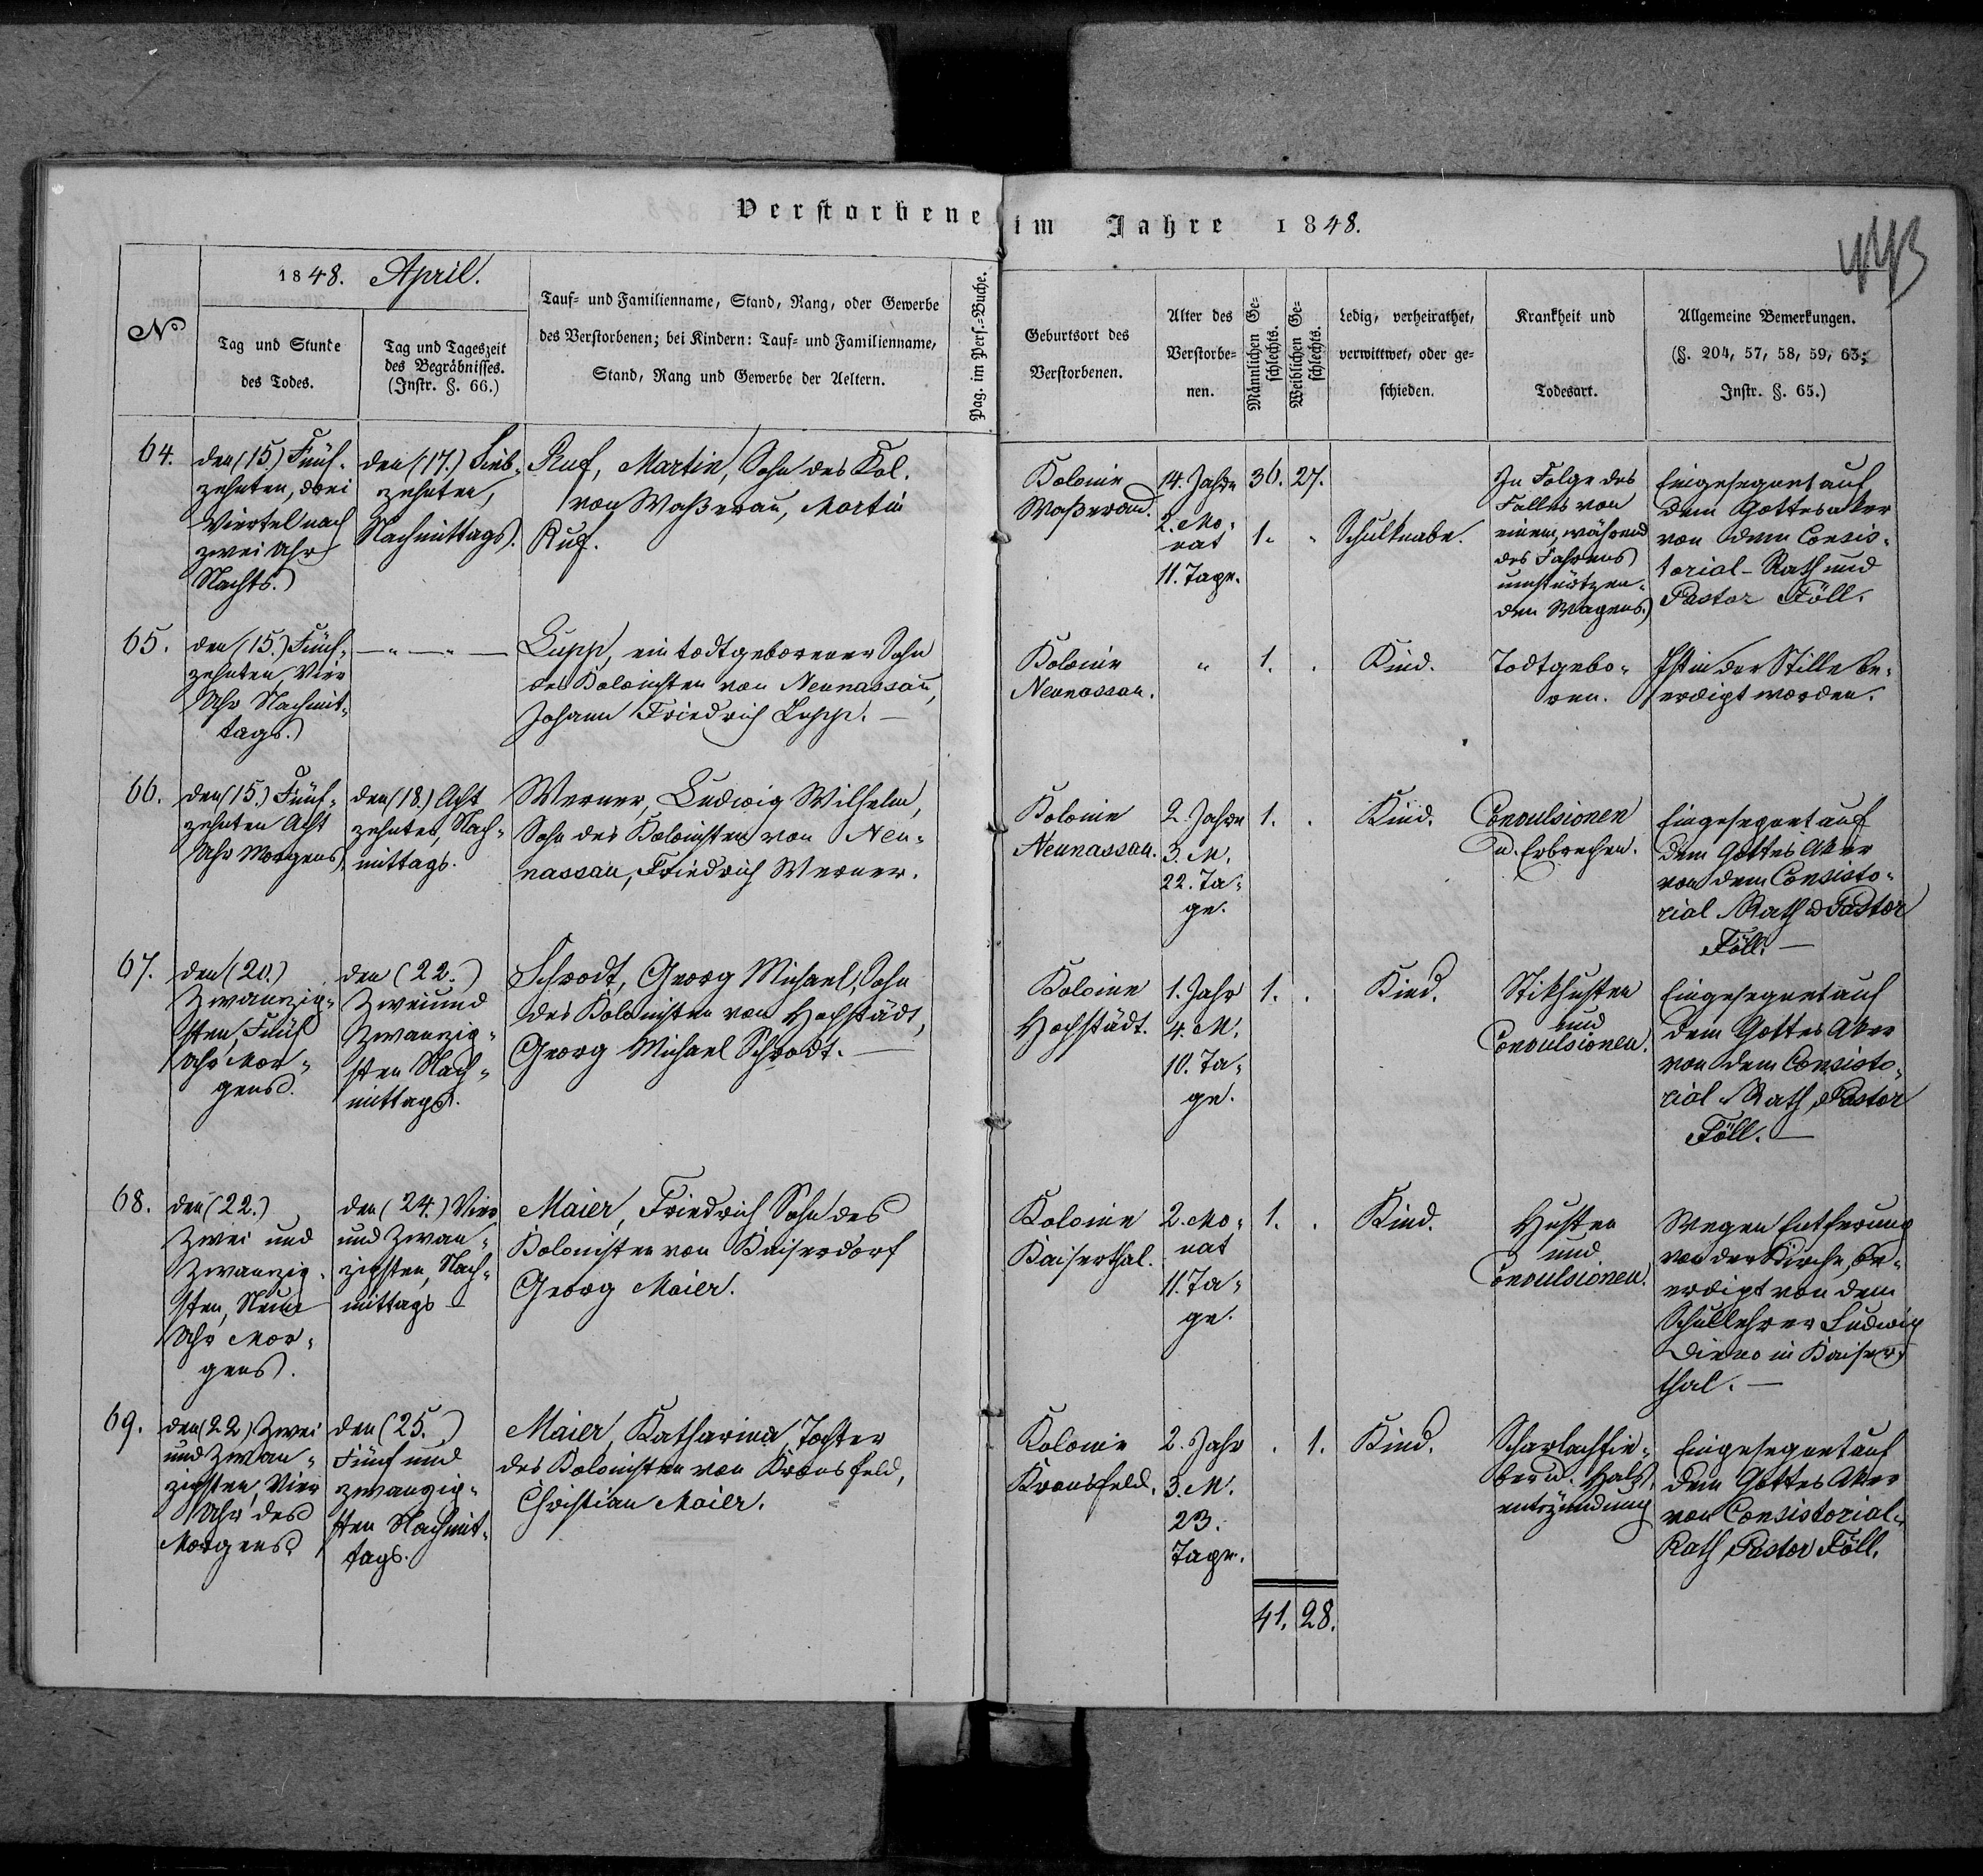 Verstorbene im Jahre 1848.
443
No
1848. April.
Tag und Stunde
des Todes.
Tag und Tageszeit
des Begräbnisses.
(Instr. §. 66.)
Tauf- und Familienname, Stand, Rang, oder Gewerbe
des Verstorbenen; bei Kindern: Tauf- und Familienname,
Stand, Rang und Gewerbe der Aeltern.
Pag. im Pers.-Buche.
Geburtsort des
Verstorbenen.
Alter des
Verstorbe-
nen.
Männlichen Ge-
schlechts.
Weiblichen Ge-
schlechts.
Ledig, verheirathet,
verwittwet, oder ge-
schieden.
Krankheit und
Todesart.
Allgemeine Bemerkungen.
(§. 204, 57, 58, 59, 63;
Instr. §. 65.)
64.
den (15.) Fünf-
zehnten, drei
Viertel nach
zwei Uhr
Nachts.
den (17.) Sieb-
zehnten,
Nachmittags.
Ruf, Martin, Sohn des Kol.
von Waßerau, Martin
Ruf.
Kolonie
Waßerau.
14. Jahre
2. Mo-
nat
11. Tage.
36. 27.
1. "
Schulknabe.
In Folge des
Falles von
einem, während
des Fahrens
umstürtzen-
den Wagens.
Eingesegnet auf
dem Gottesaker
von dem Consis-
torial-Rath und
Pastor Föll.
65.
den (15.) Fünf-
zehnten, Vier
Uhr Nachmit-
tags.
— " — " —
Lupp, ein todtgeborener Sohn
des Kolonisten von Neunassau,
Johann Friedrich Lupp. —
Kolonie
Neunassau.
"
1. .
Kind.
Todtgebo-
ren.
Ist in der Stille be-
erdigt worden.
66.
den (15.) Fünf-
zehnten Acht
Uhr Morgens.
den (18.) Acht
zehnten, Nach-
mittags.
Werner, Ludwig Wilhelm,
Sohn des Kolonisten von Neu-
nassau, Friedrich Werner.
Kolonie
Neunassau.
2. Jahre
3. M.
22. Ta-
ge.
1. .
Kind.
Convulsionen
u. Erbrechen.
Eingesegnet auf
dem Gottes Aker
von dem Consisto-
rial Rath & Pastor
Föll. —
67.
den (20.)
Zwanzig-
sten, Fünf
Uhr Mor-
gens.
den (22.)
Zweiund
Zwanzig-
sten Nach-
mittags.
Schrodt, Georg Michael, Sohn
des Kolonisten von Hochstädt,
Georg Michael Schrodt. —
Kolonie
Hochstädt.
1. Jahr
4. M.
10. Ta-
ge.
1. .
Kind.
Stikhusten
und
Convulsionen.
Eingesegnet auf
dem Gottes Aker
von dem Consisto-
rial Rath & Pastor
Föll. —
68.
den (22.)
Zwei und
Zwanzig-
sten, Neun
Uhr Mor-
gens.
den (24.) Vier
und Zwan-
zigsten, Nach-
mittags —
Maier, Friedrich Sohn des
Kolonisten von Kaiserdorf
Georg Maier.
Kolonie
Kaiserthal.
2. Mo-
nat
11. Ta-
ge.
1. .
Kind.
Husten
und
Convulsionen.
Wegen Entfernung
von der Kirche, be-
erdigt von dem
Schullehrer Ludwig
in Kaiser-
thal. —
69.
den (22) Zwei
und Zwan-
zigsten, Vier
Uhr des
Morgens
den (25.)
Fünf und
zwanzig-
sten Nachmit-
tags.
Maier, Katharina, Tochter
des Kolonisten von Kronsfeld,
Christian Maier.
Kolonie
Kronsfeld.
2. Jahr
3. M.
23.
Tage.
. 1.
Kind.
Scharlachfie-
ber u. Hals-
entzündung
Eingesegnet auf
dem Gottes Aker
von Consistorial-
Rath, Pastor Föll.
41. 28.